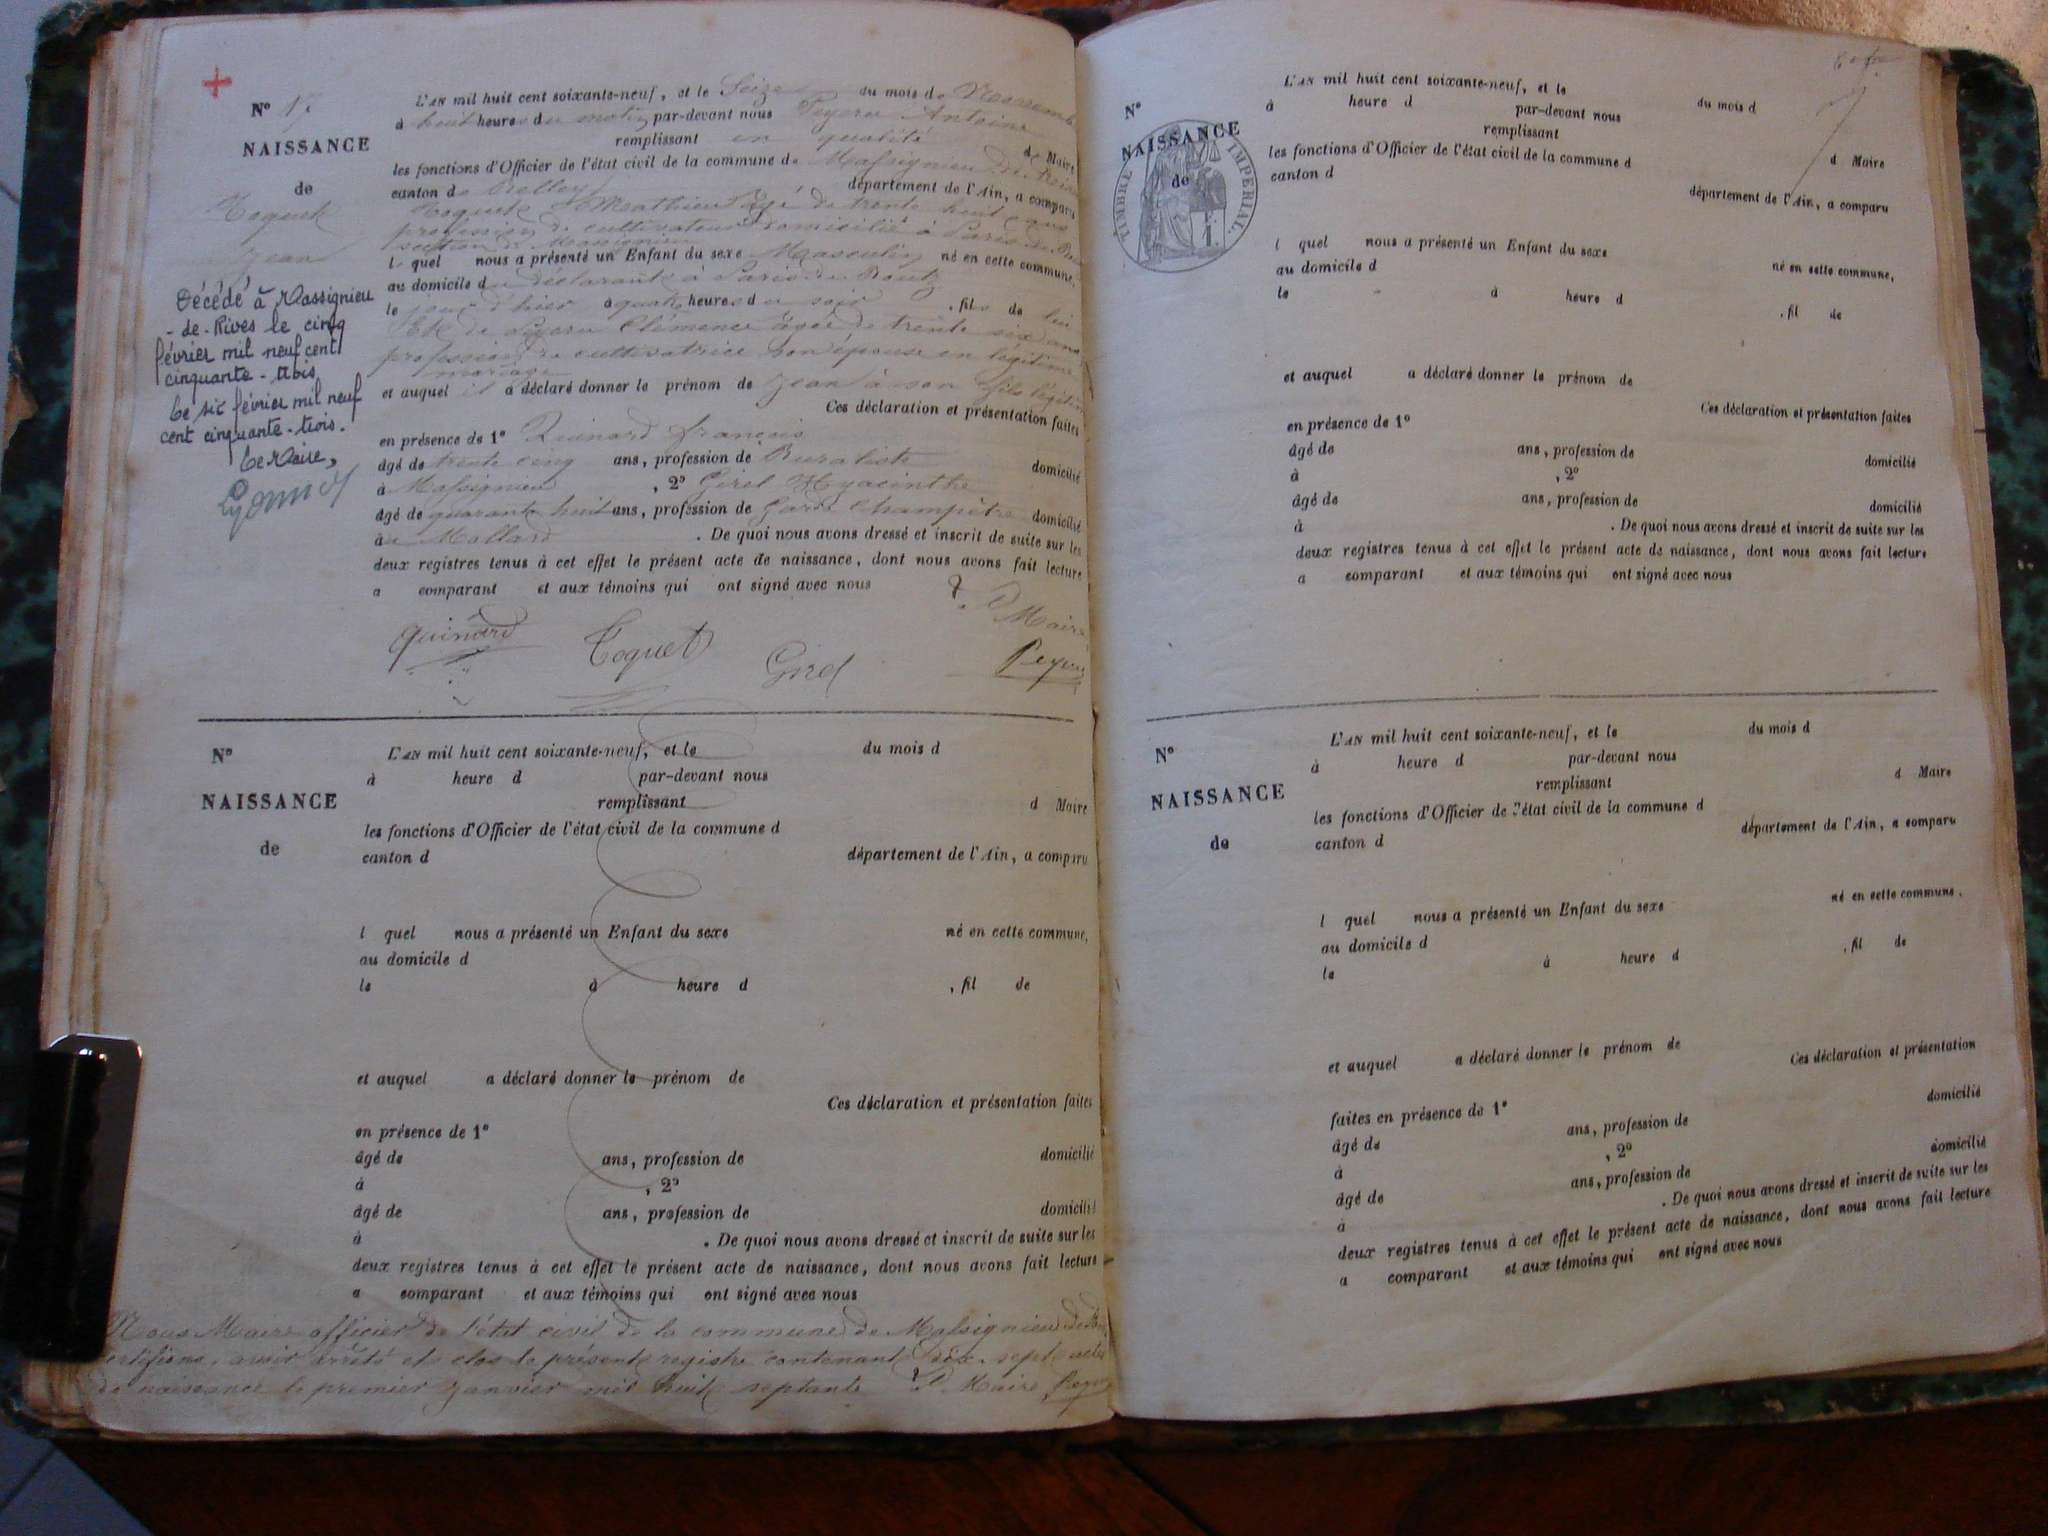 N° 17
NAISSANCE
de
Toquet
Jean
Décédé à Massignieu
-de-Rives le cinq
février mil neuf cent
cinquante-trois
Le six février mil neuf
cent cinquante-trois.
Le Maire,
L'AN mil huit cent soixante-neuf, et le Seize du mois de Novembre
à huit heures du matin par-devant nous Peysru Antoine
remplissant en qualité de Maire
les fonctions d'Officier de l'état civil de la commune de Massignieu de Rives
canton de Belley département de l'Ain, a comparu
Toquet Mathieu âgé de trente huit ans
profession de cultivateur domicilié à
section de Massignieu
lequel nous a présenté un Enfant du sexe Masculin né en cette commune,
au domicile du déclarant à
le jour d'hier à quatre heures du soir, fils de lui
Et de Clémence âgée de trente six ans
profession de cultivatrice son épouse en légitime
mariage
et auquel il a déclaré donner le prénom de Jean à son fils légitime
Ces déclaration et présentation faites
en présence de 1° Quinard françois
âgé de trente cinq ans, profession de Buraliste domicilié
à Massignieu, 2° Girel Hyacinthe
âgé de quarante huit ans, profession de Garde Champêtre domicilié
au Mollard. De quoi nous avons dressé et inscrit de suite sur les
deux registres tenus à cet effet le présent acte de naissance, dont nous avons fait lecture
a comparant et aux témoins qui ont signé avec nous
Le Maire
Quinard Toquet Girel
N°
NAISSANCE
de
L'AN mil huit cent soixante-neuf, et le du mois d
à heure d par-devant nous
remplissant d Maire
les fonctions d'Officier de l'état civil de la commune d
canton d département de l'Ain, a comparu
l quel nous a présenté un Enfant du sexe né en cette commune,
au domicile d
le à heure d , fil de
et auquel a déclaré donner le prénom de
Ces déclaration et présentation faites
en présence de 1°
âgé de ans, profession de domicilié
à , 2°
âgé de ans, profession de domicilié
à . De quoi nous avons dressé et inscrit de suite sur les
deux registres tenus à cet effet le présent acte de naissance, dont nous avons fait lecture
a comparant et aux témoins qui ont signé avec nous
Nous Maire officier de l'état civil de la commune de Massignieu de Rives
certifions, avoir arrêté et clos le présent registre contenant Dix-sept actes
de naissance le premier Janvier mil huit septante Le Maire
N°
NAISSANCE
de
TIMBRE IMPERIAL.
L'AN mil huit cent soixante-neuf, et le du mois d
à heure d par-devant nous
remplissant d Maire
les fonctions d'Officier de l'état civil de la commune d
canton d département de l'Ain, a comparu
l quel nous a présenté un Enfant du sexe né en cette commune,
au domicile d
le à heure d , fil de
et auquel a déclaré donner le prénom de
Ces déclaration et présentation faites
en présence de 1°
âgé de ans, profession de domicilié
à , 2°
âgé de ans, profession de domicilié
à . De quoi nous avons dressé et inscrit de suite sur les
deux registres tenus à cet effet le présent acte de naissance, dont nous avons fait lecture
a comparant et aux témoins qui ont signé avec nous
N°
NAISSANCE
de
L'AN mil huit cent soixante-neuf, et le du mois d
à heure d par-devant nous
remplissant d Maire
les fonctions d'Officier de l'état civil de la commune d
canton d département de l'Ain, a comparu
l quel nous a présenté un Enfant du sexe né en cette commune.
au domicile d
le à heure d , fil de
et auquel a déclaré donner le prénom de
Ces déclaration et présentation
faites en présence de 1°
âgé de ans, profession de domicilié
à , 2°
âgé de ans, profession de domicilié
à . De quoi nous avons dressé et inscrit de suite sur les
deux registres tenus à cet effet le présent acte de naissance, dont nous avons fait lecture
a comparant et aux témoins qui ont signé avec nous